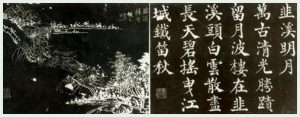 韭溪明月
萬古清光勝蹟
留月波樓在韭
溪頭白雲散盡
長天碧搖曳江
城鐵笛秋